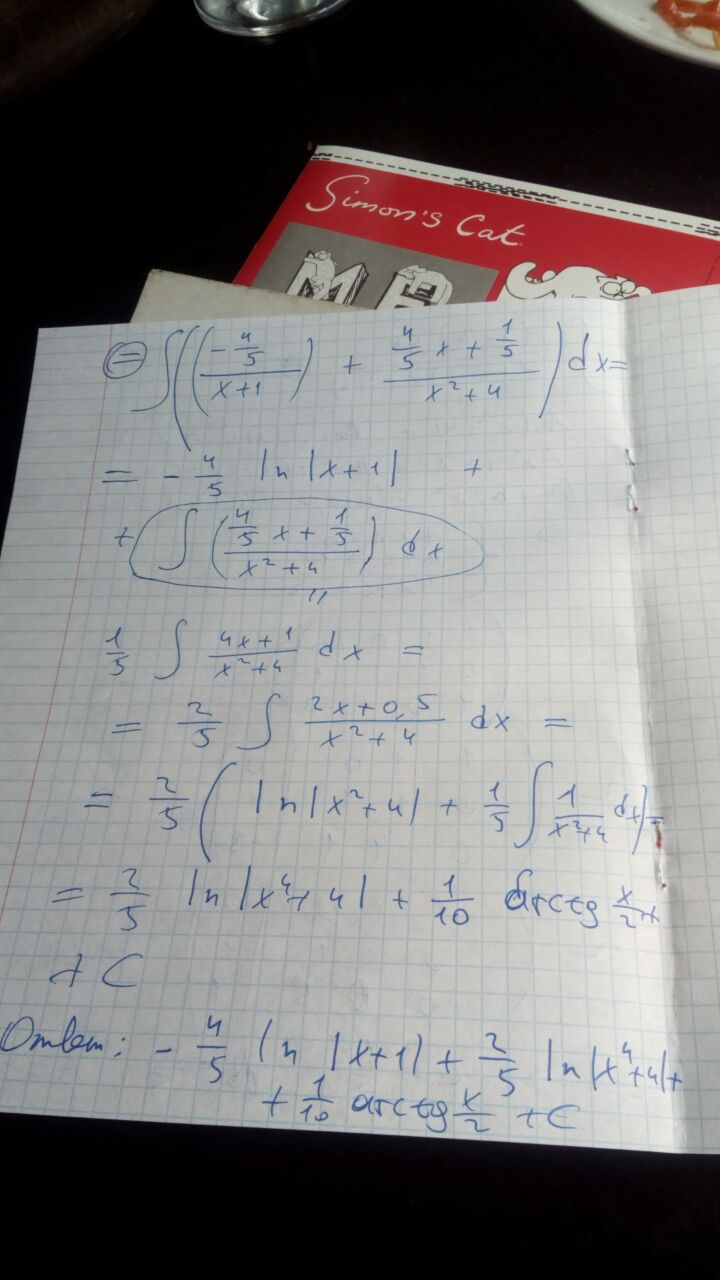 Simon's Cat
⊜ ∫ ( ( (-4/5)/(x+1) ) + (4/5 x + 1/5)/(x²+4) ) dx =
= - 4/5 ln |x+1| +
+ ∫ ( (4/5 x + 1/5)/(x²+4) ) dx
"
1/5 ∫ (4x+1)/(x²+4) dx =
= 2/5 ∫ (2x+0,5)/(x²+4) dx =
= 2/5 ( ln |x²+4| + 1/5 ∫ 1/(x²+4) dx) =
= 2/5 ln |x⁴+4| + 1/10 arctg x/2 +
+ C
Ответ: - 4/5 ln |x+1| + 2/5 ln |x⁴+4| +
+ 1/10 arctg x/2 + C